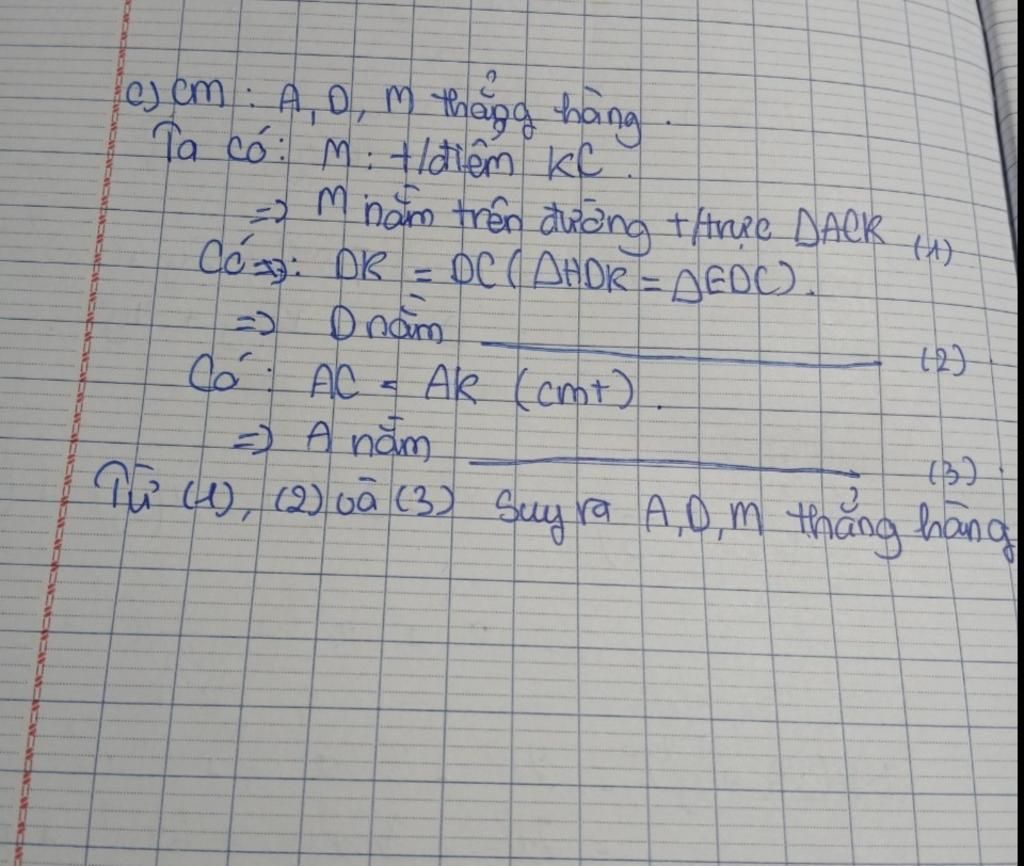 c) cm : A, D, M thẳng hàng.
Ta có: M: t/điểm KC.
=> M nằm trên đường t/trực ΔACK (1)
Có => : DK = DC (ΔHDK = ΔEDC).
=> D nằm ——— (2)
Có : AC = AK (cmt).
=> A nằm ——— (3)
Từ (1), (2) và (3) Suy ra A, D, M thẳng hàng